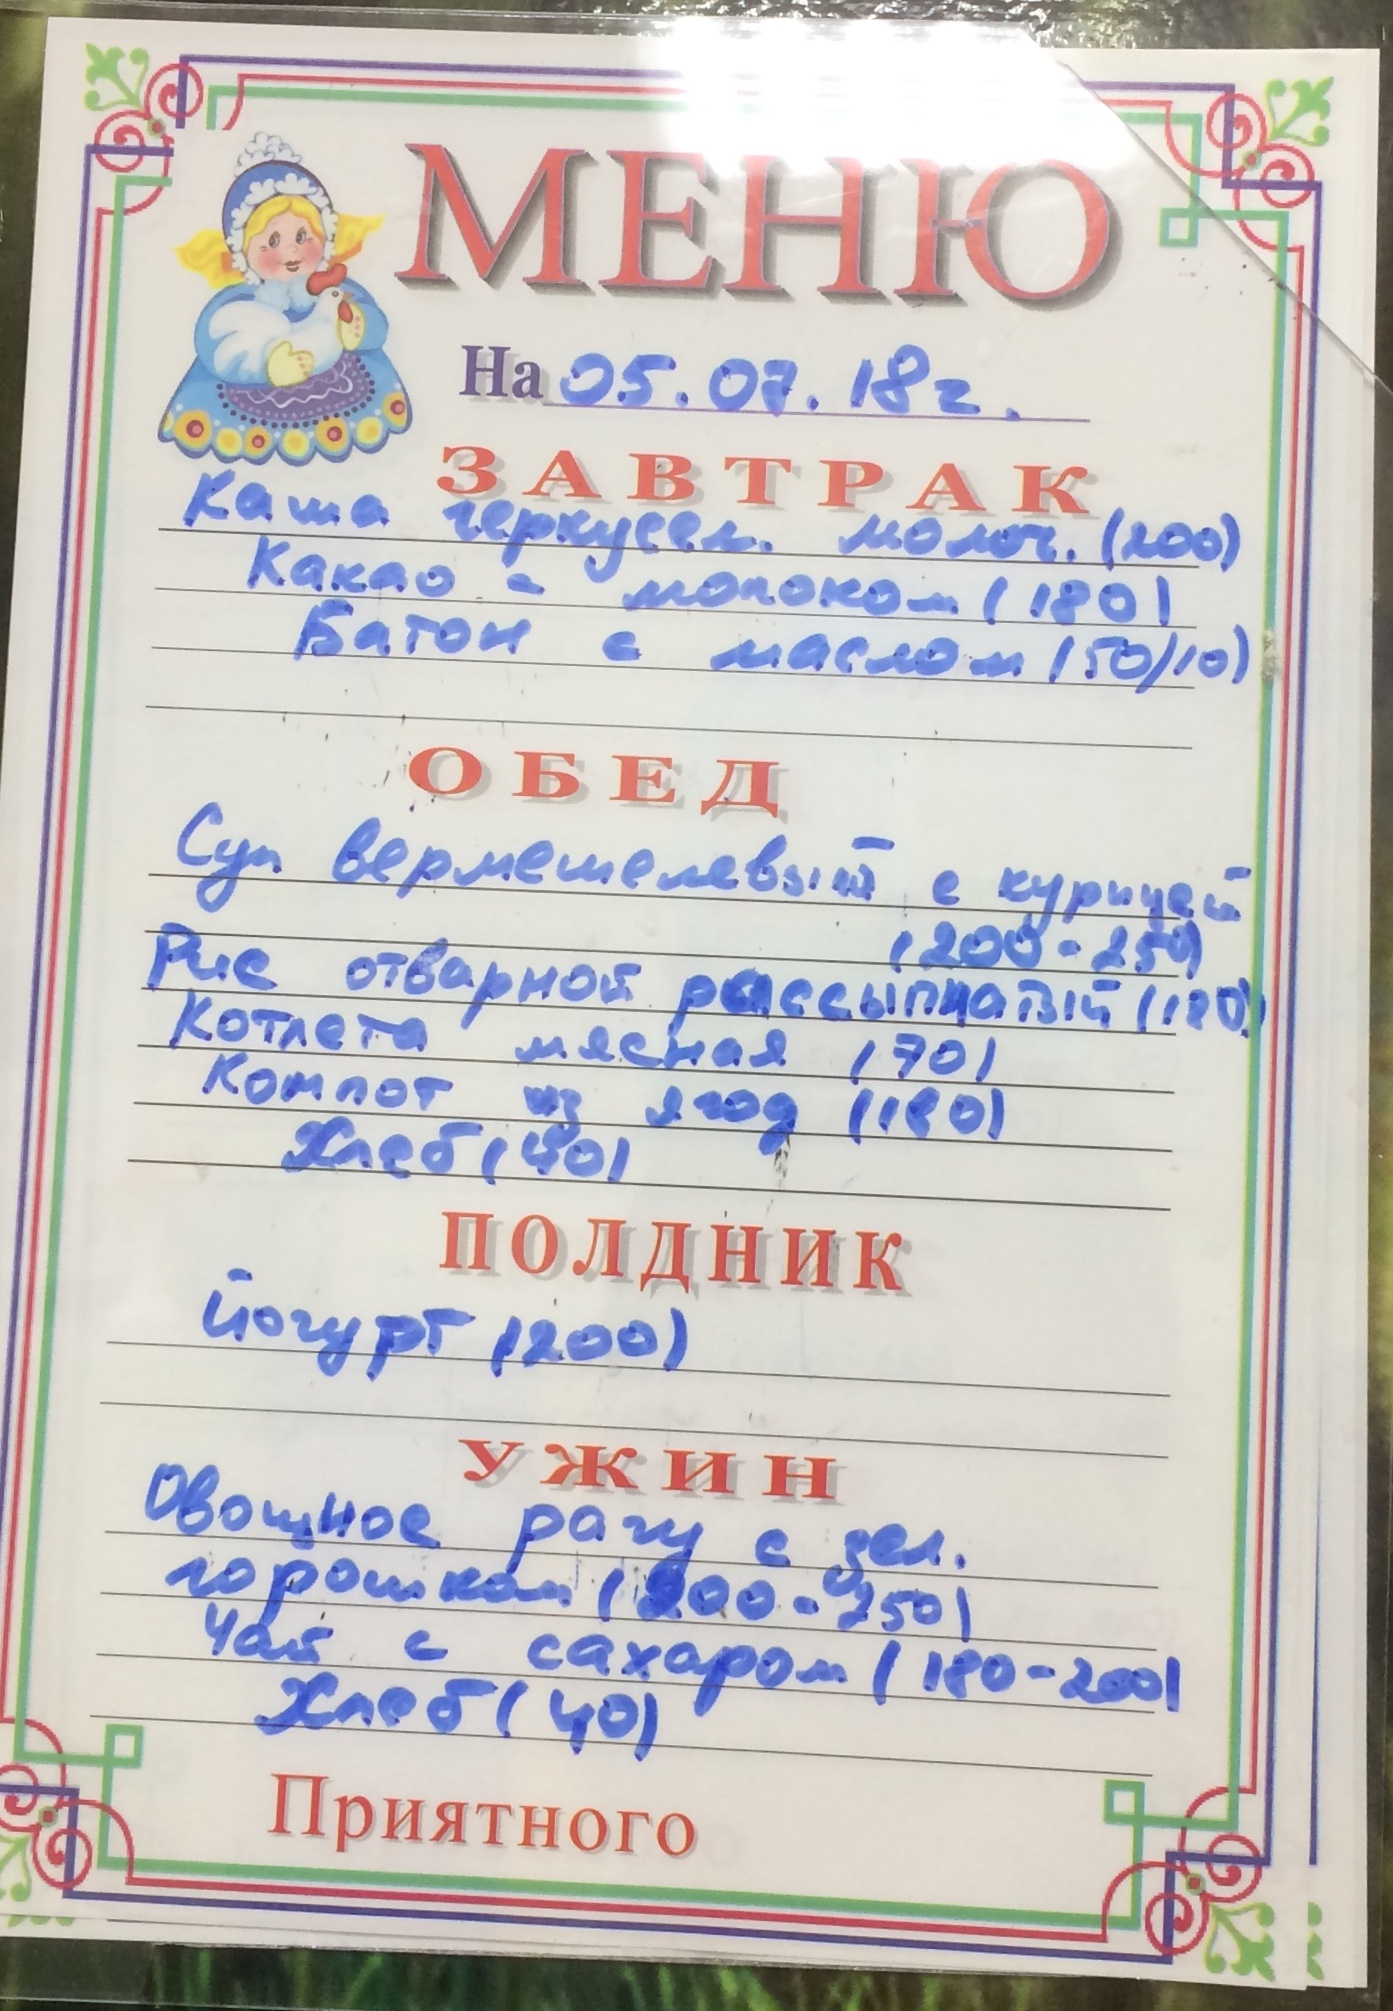 МЕНЮ
На 05.07.18г.
ЗАВТРАК
Каша геркулесл. молоч. (200)
Какао - молоком (180)
Батон с маслом (50/10)
ОБЕД
Суп вермешелевый с курицей
(200-250)
Рис отварной рассыпчатый (180)
Котлета мясная (70)
Компот из ягод (180)
Хлеб (40)
ПОЛДНИК
Йогурт (200)
УЖИН
Овощное рагу с зел.
горошком (200-250)
Чай с сахаром (180-200)
Хлеб (40)
Приятного